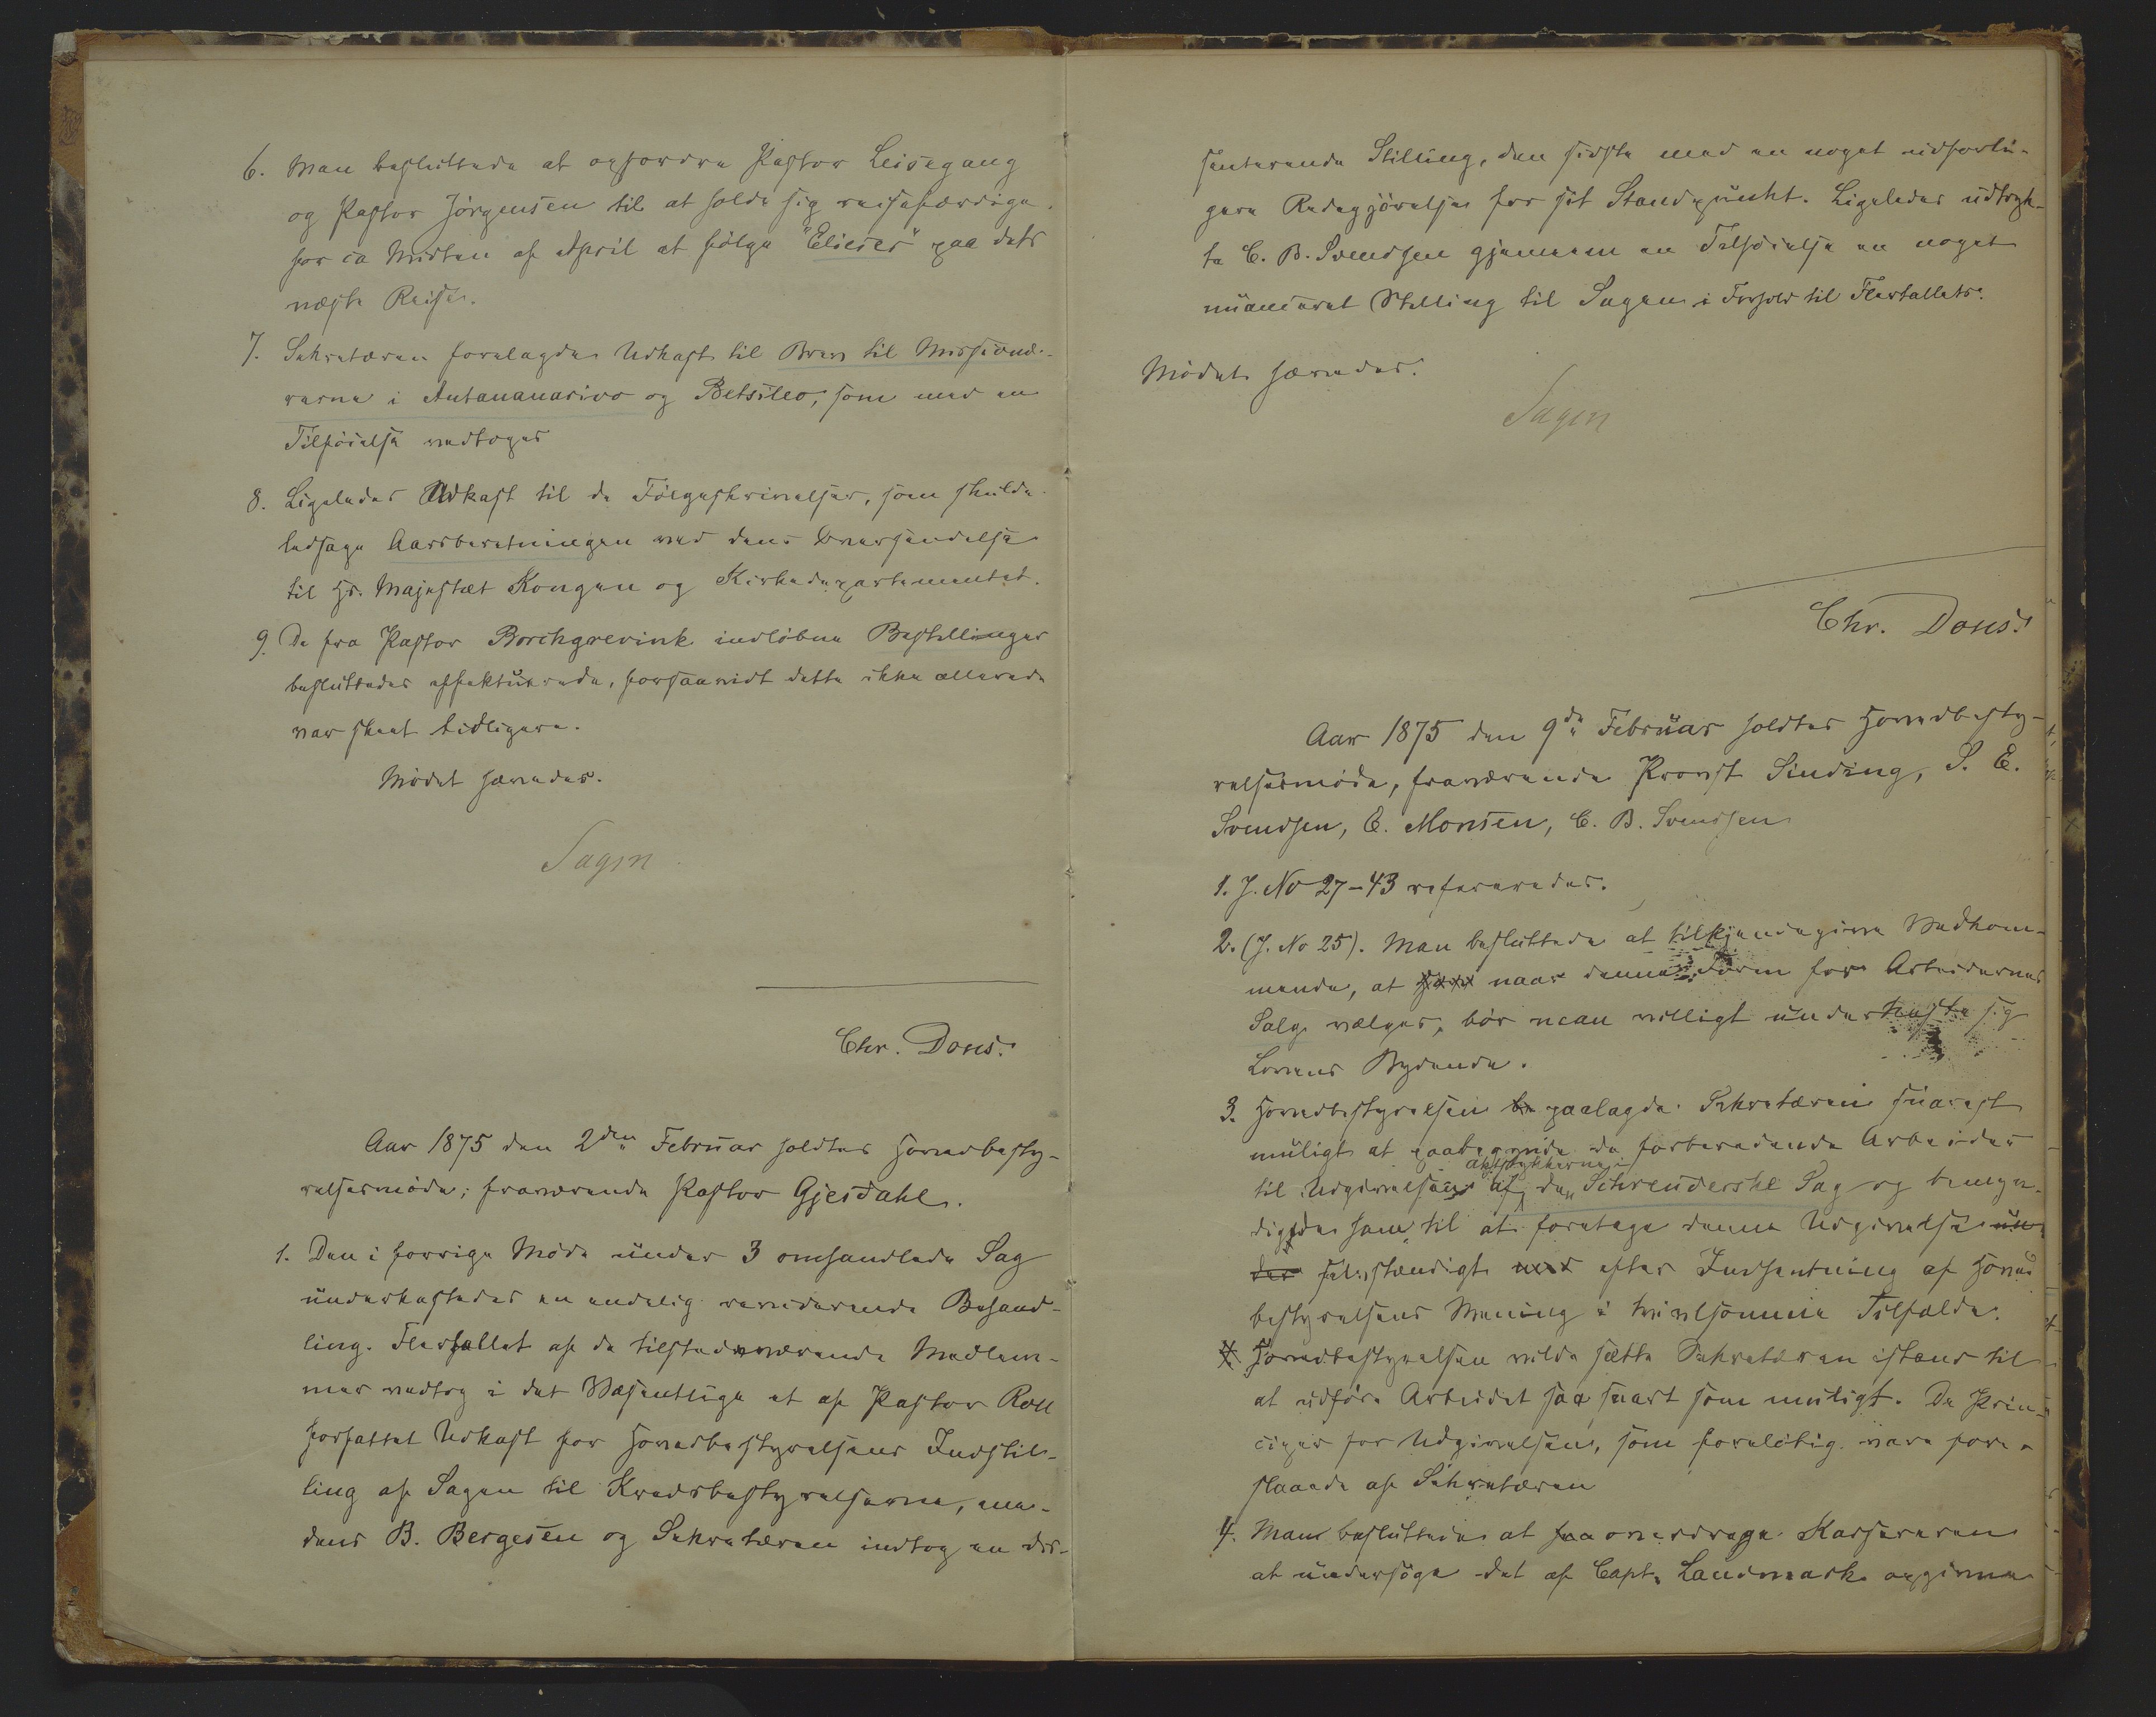 6. Man besluttede at opfordre Pastor Leisegang
og Pastor Jörgensen til at holde sig reisefærdige
for ca Midten af April at følge "Elieser" paa dets
næste Reise.
7. Sekretæren forelagde Udkast til Brev til Missionæ-
rerne i Antananarivo og Betsileo, som med en
Tilføielse vedtoges
8. Ligeledes Udkast til de Følgeskrivelser, som skulde
ledsage Aarsberetningen ved dens Oversendelse
til Hs. Majestæt Kongen og Kirkedepartementet.
9. De fra Pastor Borchgrevink indløbne Bestillinger
besluttedes effektuerede, forsaavidt dette ikke allerede
var skeet tidligere.
Mødet hævedes.
Sagen
Chr. Dons.
Aar 1875 den 2den Februar holdtes Hovedbesty-
relsesmøde; fraværende Pastor Gjesdahl.
1. Den i forrige Møde under 3 omhandlede Sag
underkastedes en endelig reviderende Behand-
ling. Flertallet af de tilstedeværende Medlem-
mer vedtog i det Væsentlige et af Pastor Roll
forfattet Udkast for Hovedbestyrelsens Indstil-
ling af Sagen til Kredsbestyrelserne, me-
dens B. Bergesen og Sekretæren indtog en dis-
senterende Stilling, den sidste med en noget udførli-
gere Redegjørelse for sit Standpunkt. Ligeledes udtryk-
te C. B. Svendsen gjennem en Tilføielse en noget
nuanceret Stilling til Sagen i Forhold til Flertallets.
Mødet hævedes.
Sagen
Chr. Dons.
Aar 1875 den 9de Februar holdtes Hovedbesty-
relsesmøde, fraværende Provst Sinding, S. E.
Svendsen, E. Monsen, C. B. Svendsen
1. J. No 27-43 refereredes.
2. (J. No 25). Man besluttede at tilkjendegive Vedkom-
mende, at naar denne Form for Arbeidernes
Salg vælges, bør man villigt underkaste sig
Lovens Bydende.
3. Hovedbestyrelsen paalagde Sekretæren snarest
muligt at paabegynde de forberedende Arbeider
til Udgivelsen af Aktstykkerne i den Schreuderske Sag og bemyn-
digede ham til at foretage denne Udgivelse
selvstændigt efter Indhentning af Hoved
bestyrelsens Mening i tvivlsomme Tilfælde.
Hovedbestyrelsen vilde sætte Sekretæren istand til
at udføre Arbeidet saa snart som muligt. De Prin-
ciper for Udgivelsen, som foreløbig vare fore-
slaaede af Sekretæren
4. Man besluttede at overdrage Kassereren
at undersøge det af Capt. Landmark opgivne